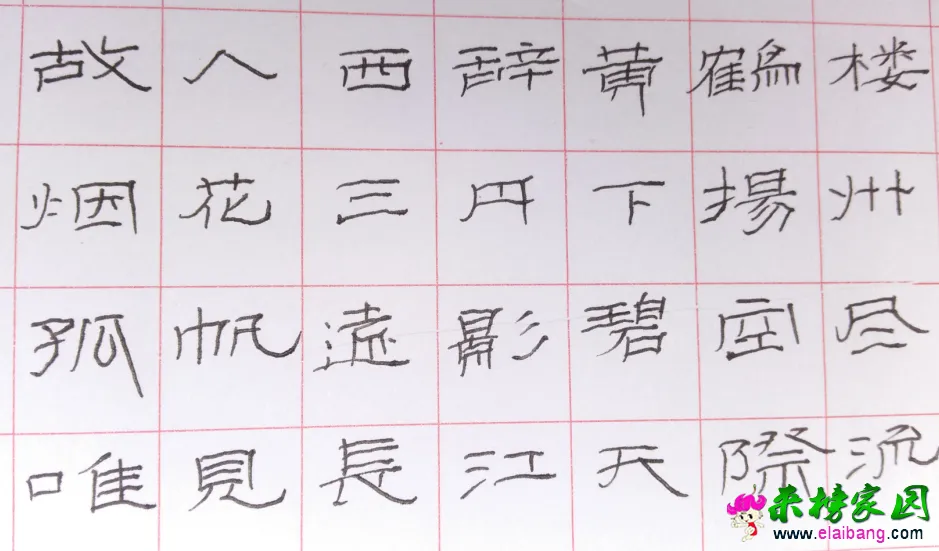 故人西辞黄鶴楼
烟花三月下揚州
孤帆遠影碧空尽
唯見長江天際流
来榜家园
www.elaibang.com